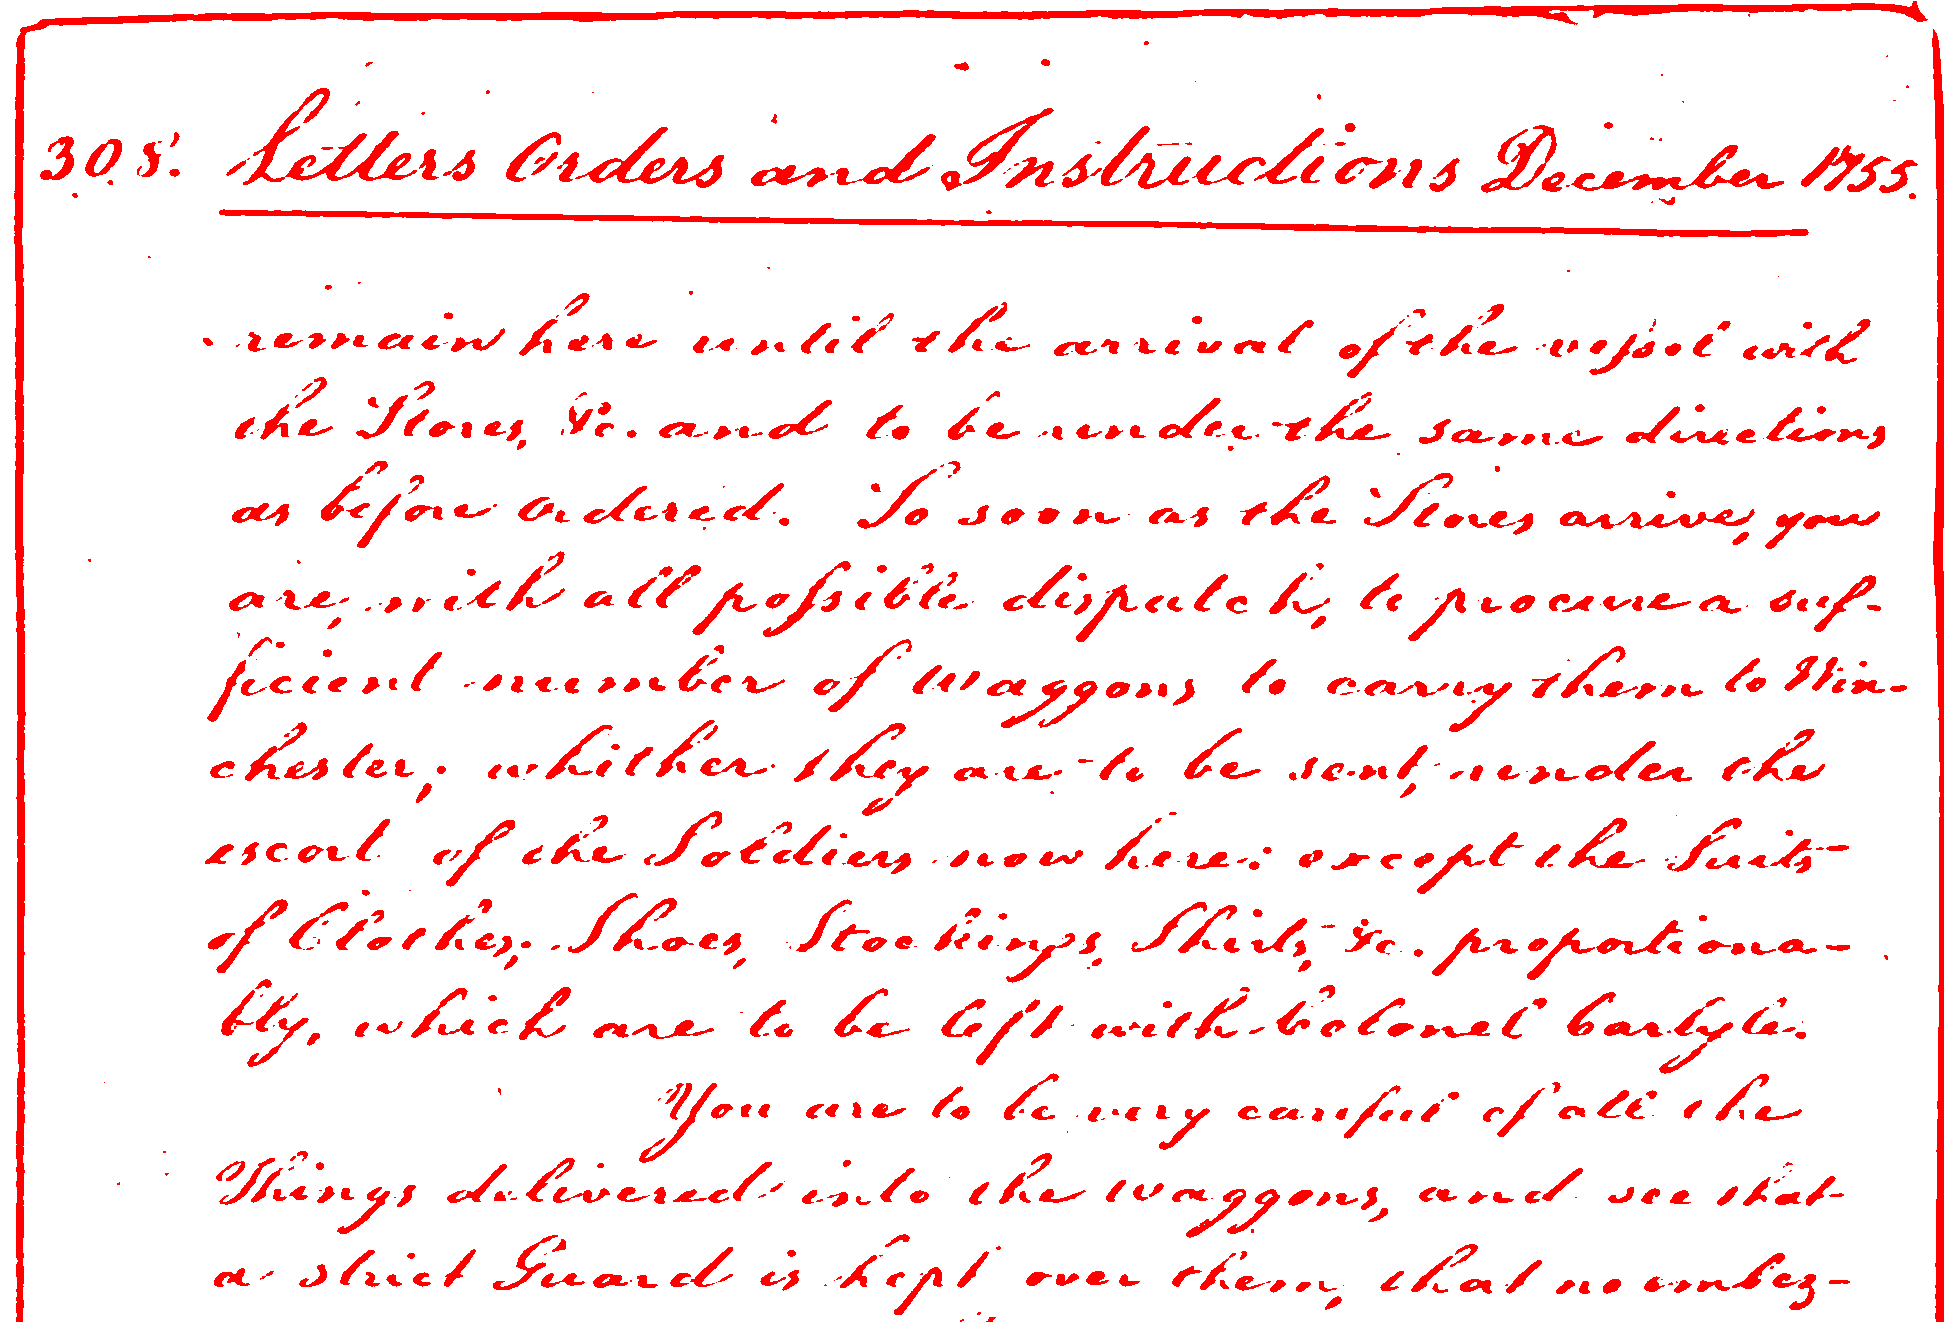 308. Letters Orders and Instructions December 1755.
remain here until the arrival of the vessel with
the Stores, &c. and to be under the same directions
as before ordered. So soon as the Stores arrive, you
are, with all possible dispatch, to procure a suf-
ficient number of waggons to carry them to Win-
chester; whither they are to be sent, under the
escort of the Soldiers now here: except the Suits
of Clothes, Shoes, Stockings, Shirts, &c. proportiona-
bly, which are to be left with Colonel Carlyle.
You are to be very careful of all the
Things delivered into the waggons, and see that
a strict Guard is kept over them, that no embez-